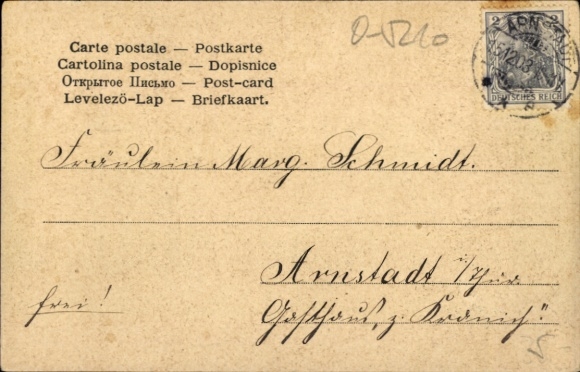 Carte postale — Postkarte
Cartolina postale — Dopisnice
Открытое Письмо — Post-card
Levelező-Lap — Briefkaart.
2 2
DEUTSCHES REICH
Fräulein Marg. Schmidt.
Arnstadt i/Thür.
frei!
Gasthaus „z. Kranich".